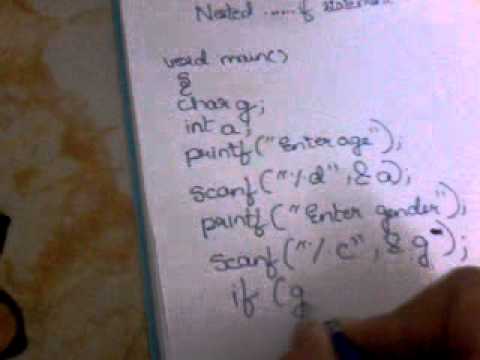 Nested ......if statement
void main()
{
char g;
int a;
printf("Enter age");
scanf("%d", &a);
printf("Enter gender");
scanf("%c", &g");
if (g